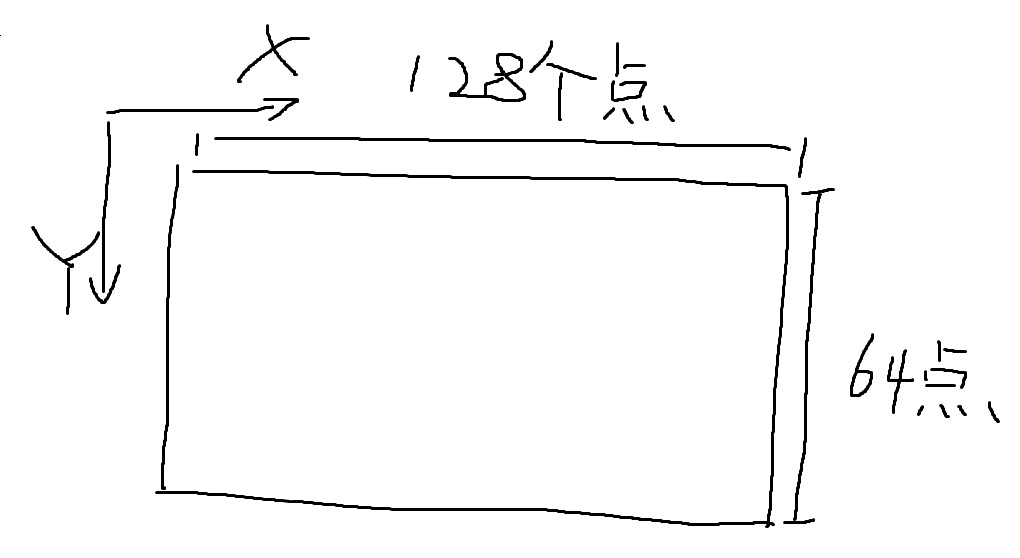 X
128个点
Y
64点